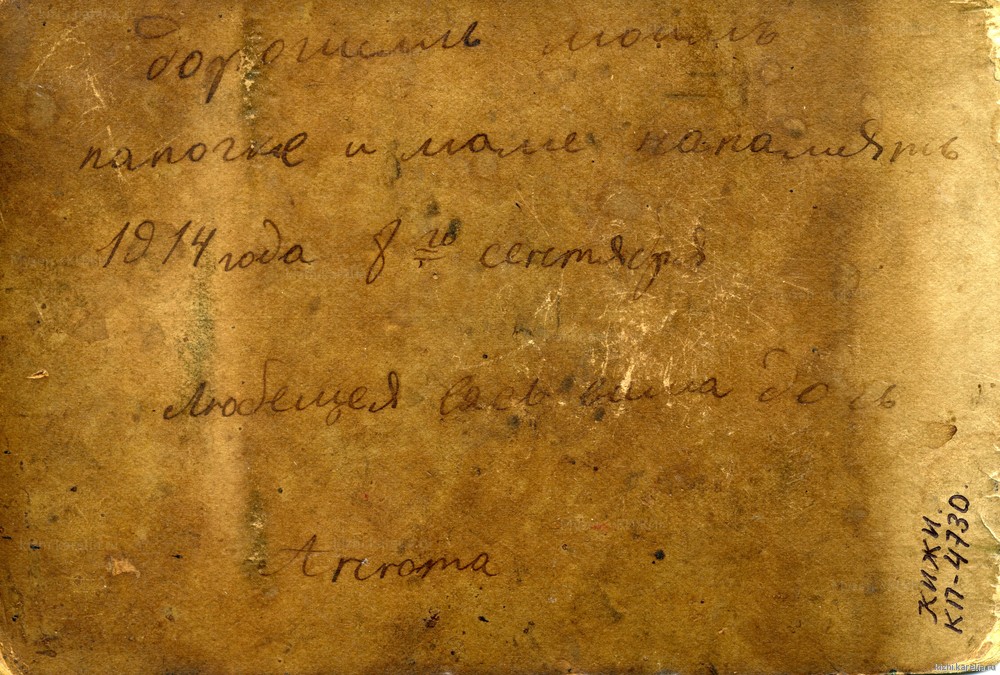 дорогимъ моимъ
папочке и маме напамять
1914 года 8го сентября
любещея васъ ваша дочь
Анюта
КИЖИ.
КП-4730.
kizhi.karelia.ru